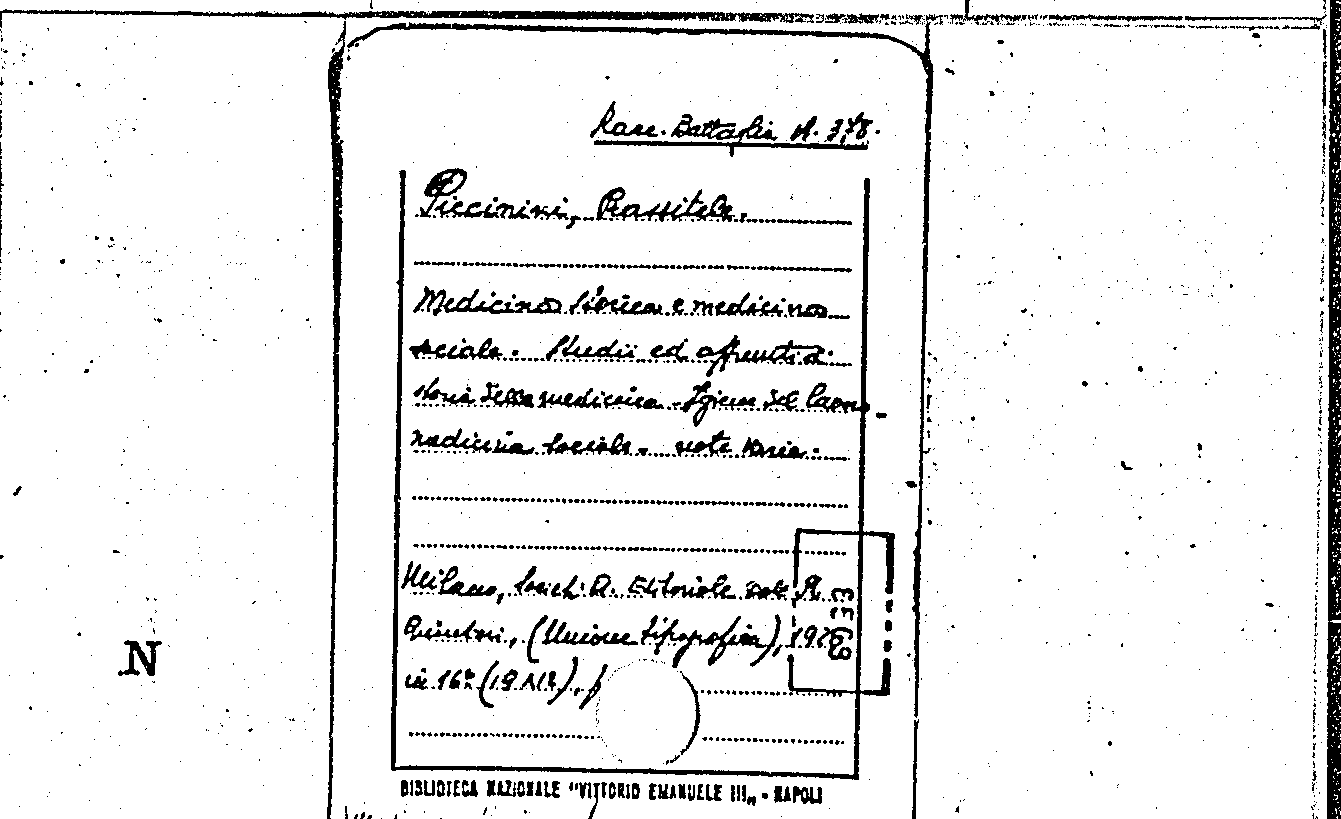 Racc. Battaglia A. 378.
Piccinini, Prassitele.
Medicina storica e medicina
sociale. Studii ed appunti di
storia della medicina. Igiene del lavoro
medicina sociale. note varie.
Milano, Società A. Editoriale dott. A.
(Unione tipografica), 192
in 16° (19
BIBLIOTECA NAZIONALE "VITTORIO EMANUELE III„ - NAPOLI
N